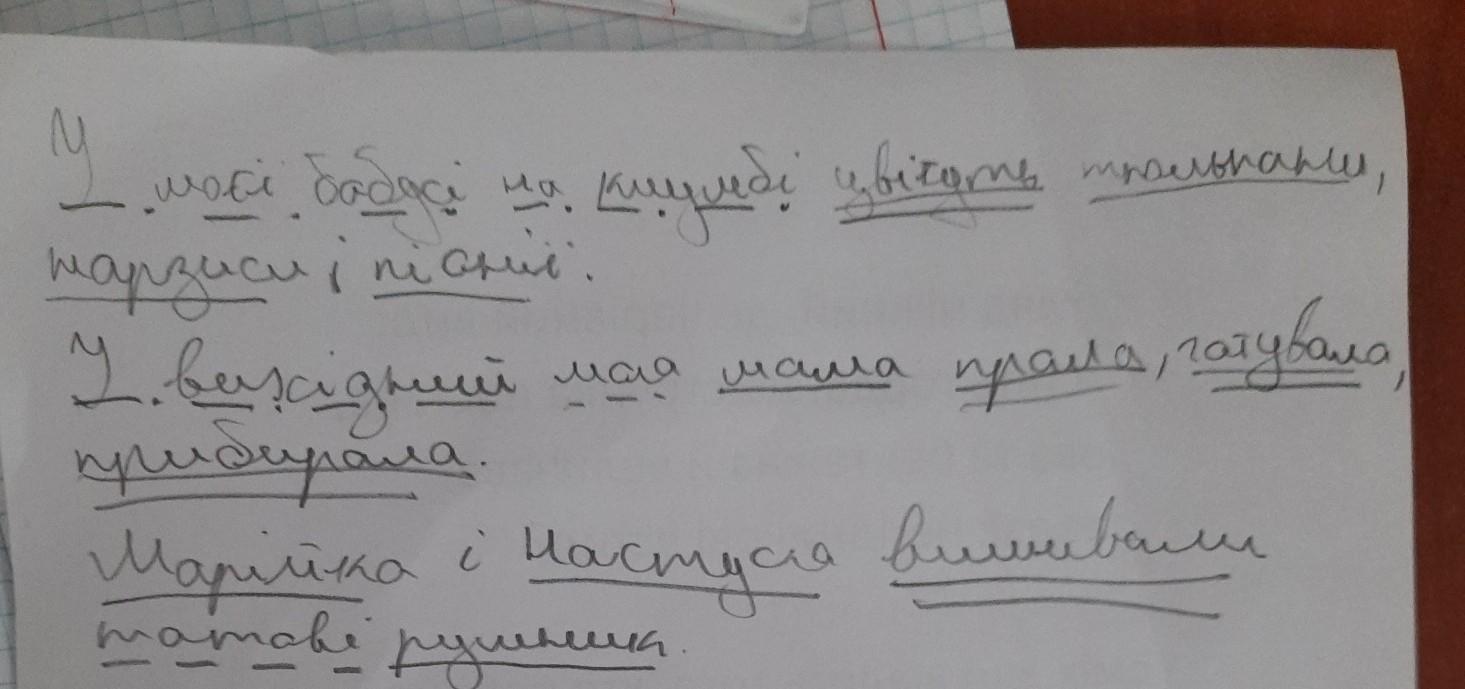 У моєї бабусі на клумбі цвітуть тюльпани,
нарзиси і півонії.
У вихідний моя мама прала, готувала,
прибирала.
Марійка і Настуся вишивали
татові рушника.